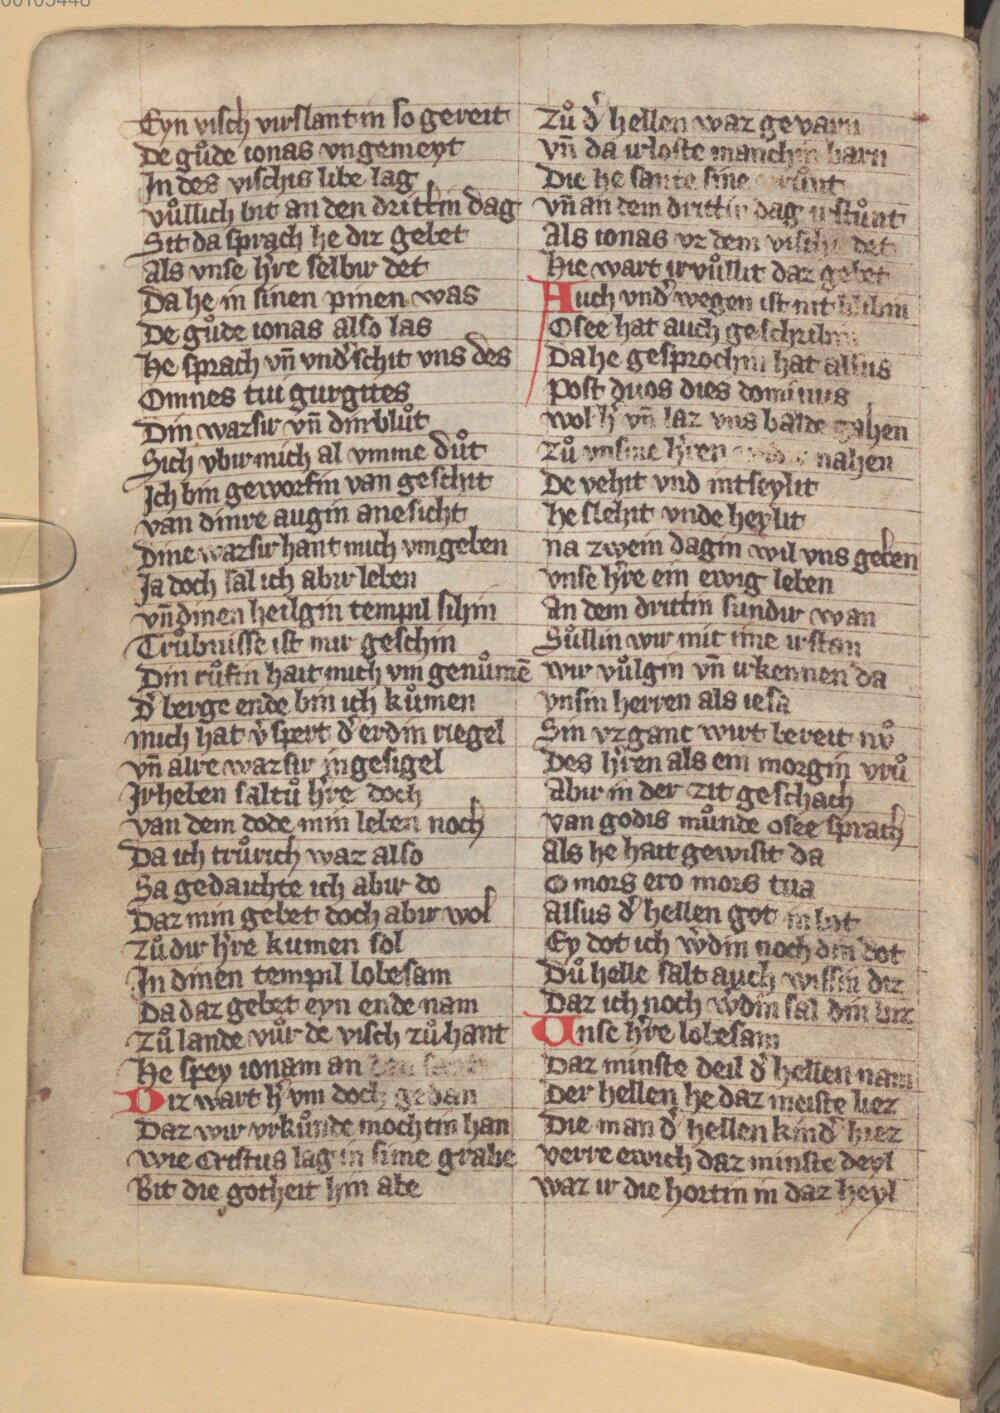 00105448
Eyn visch virslant in so gereit
De gůde ionas vngemeyt
In des vischis libe lag
vůllich bit an den drittin dag
Sit da sprach he diz gebet
Als vnse h̓re selbir det
Da he in sinen pinen was
De gůde ionas also las
He sprach vn̄ vnd̓schit vns des
Omnes tui gurgites
Din wazsir vn̄ din vlůt
Sich vbir mich al vmme důt
Ich bin geworfin van geschit
van dinre augin anesicht
Dine wazsir hant mich vmgeben
Ja doch sal ich abir leben
vn̄ dinen heilgin tempil sihin
Trůbnisse ist mir geschin
Din růfin hait mich vm genůmē
D̓ berge ende bin ich kůmen
mich hat v̓spert d̓ erdin riegel
vn̄ alre wazsir ingesigel
Irheben saltů h̓re doch
van dem dode min leben noch
Da ich trůrich waz also
Sa gedaichte ich abir do
Daz min gebet doch abir wol
Zů dir h̓re kumen sol
In dinen tempil lobesam
Da daz gebet eyn ende nam
Zů lande vůr de visch zů hant
He spey ionam an
Diz wart h̓ vm doch gedan
Daz wir vrkůnde mochtin han
wie Cristus lag in sime grabe
Bit die gotheit hin abe
Zů d̓ hellen waz gevarn
vn̄ da irloste manchin barn
Die he sante sine
vn̄ an dem drittin dag irstůnt
Als ionas vz dem vische det
Hie wart irvůllit daz gebet
Auch vnd̓ wegen ist nit blibin
Osee hat auch geschribin
Da he gesprochin hat alsus
Post duos dies dominus
wol h̓ vn̄ laz vns balde gahen
Zů vnsme h̓ren nahen
De vehit vnd intseylit
he slehit vnde heylit
na zwein dagin wil vns geben
vnse h̓re ein ewig leben
An dem drittin sundir wan
Sůllin wir mit ime irstan
wir vůlgin vn̄ irkennen da
vnsin herren als iesa
Sin vzganc wirt bereit nv̊
Des h̓ren als ein morgin vrů
Abir in der zit geschach
van godis můnde osee sprach
Als he hait gewisit da
O mors ero mors tua
Alsus d̓ hellen got inbot
Ey dot ich w̓din noch din dot
Dů helle salt auch wissin diz
Daz ich noch w̓din sal din biz
Vnse h̓re lobesam
Daz minste deil d̓ hellen nam
Der hellen he daz meiste liez
Die man d̓ hellen kind̓ hiez
verre ewich daz minste deyl
waz ir die hortin in daz heyl